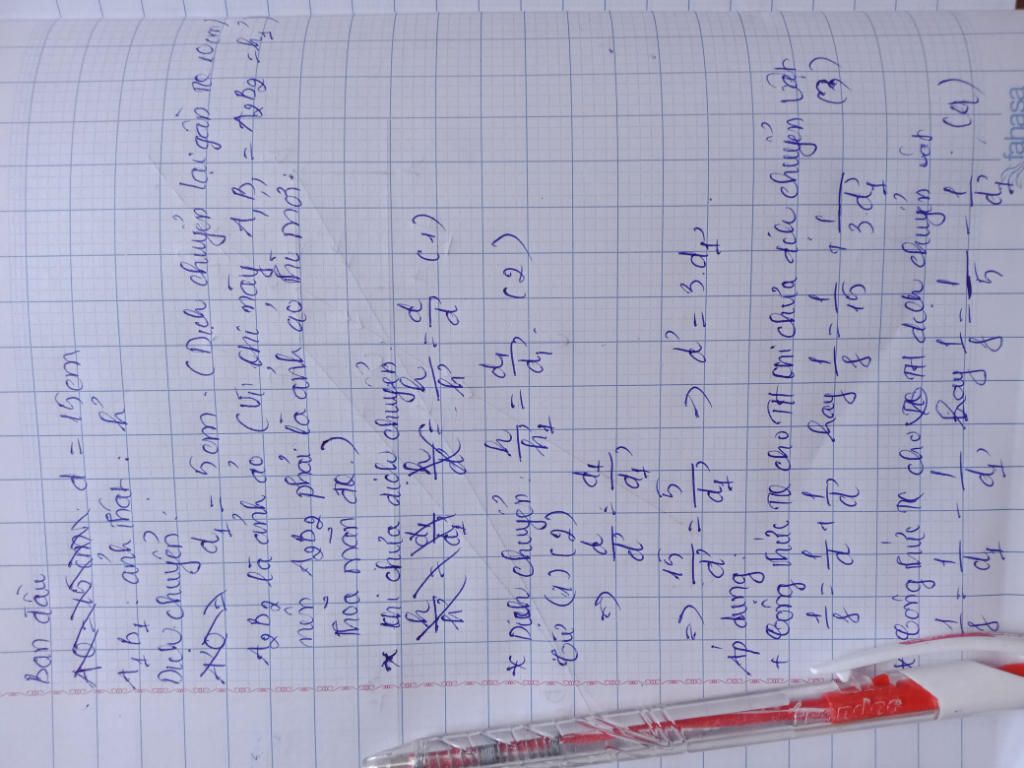 Ban đầu
d = 15cm
A₁B₁ : ảnh thật : h'
Dịch chuyển :
d₁ = 5cm . (Dịch chuyển lại gần TK 10cm)
A₂B₂ là ảnh ảo (Vì chỉ này A₁B₁ = A₂B₂ = h')
nên A₂B₂ phải là ảnh ảo thì mới :
thỏa mãn đk..)
* Khi chưa dịch chuyển :
h/h' = d/d' (1)
* Dịch chuyển : h/h₁ = d₁/d₁' . (2)
Từ (1) (2)
=> d/d' = d₁/d₁'
=> 15/d' = 5/d₁' => d' = 3.d₁'
Áp dụng :
+ Công thức TK cho TH khi chưa dịch chuyển vật
1/f = 1/d + 1/d' hay 1/f = 1/15 + 1/3.d₁' (3)
* Công thức TK cho TH dịch chuyển vật
1/f = 1/d₁ - 1/d₁' hay 1/f = 1/5 - 1/d₁' . (4)
fahasa